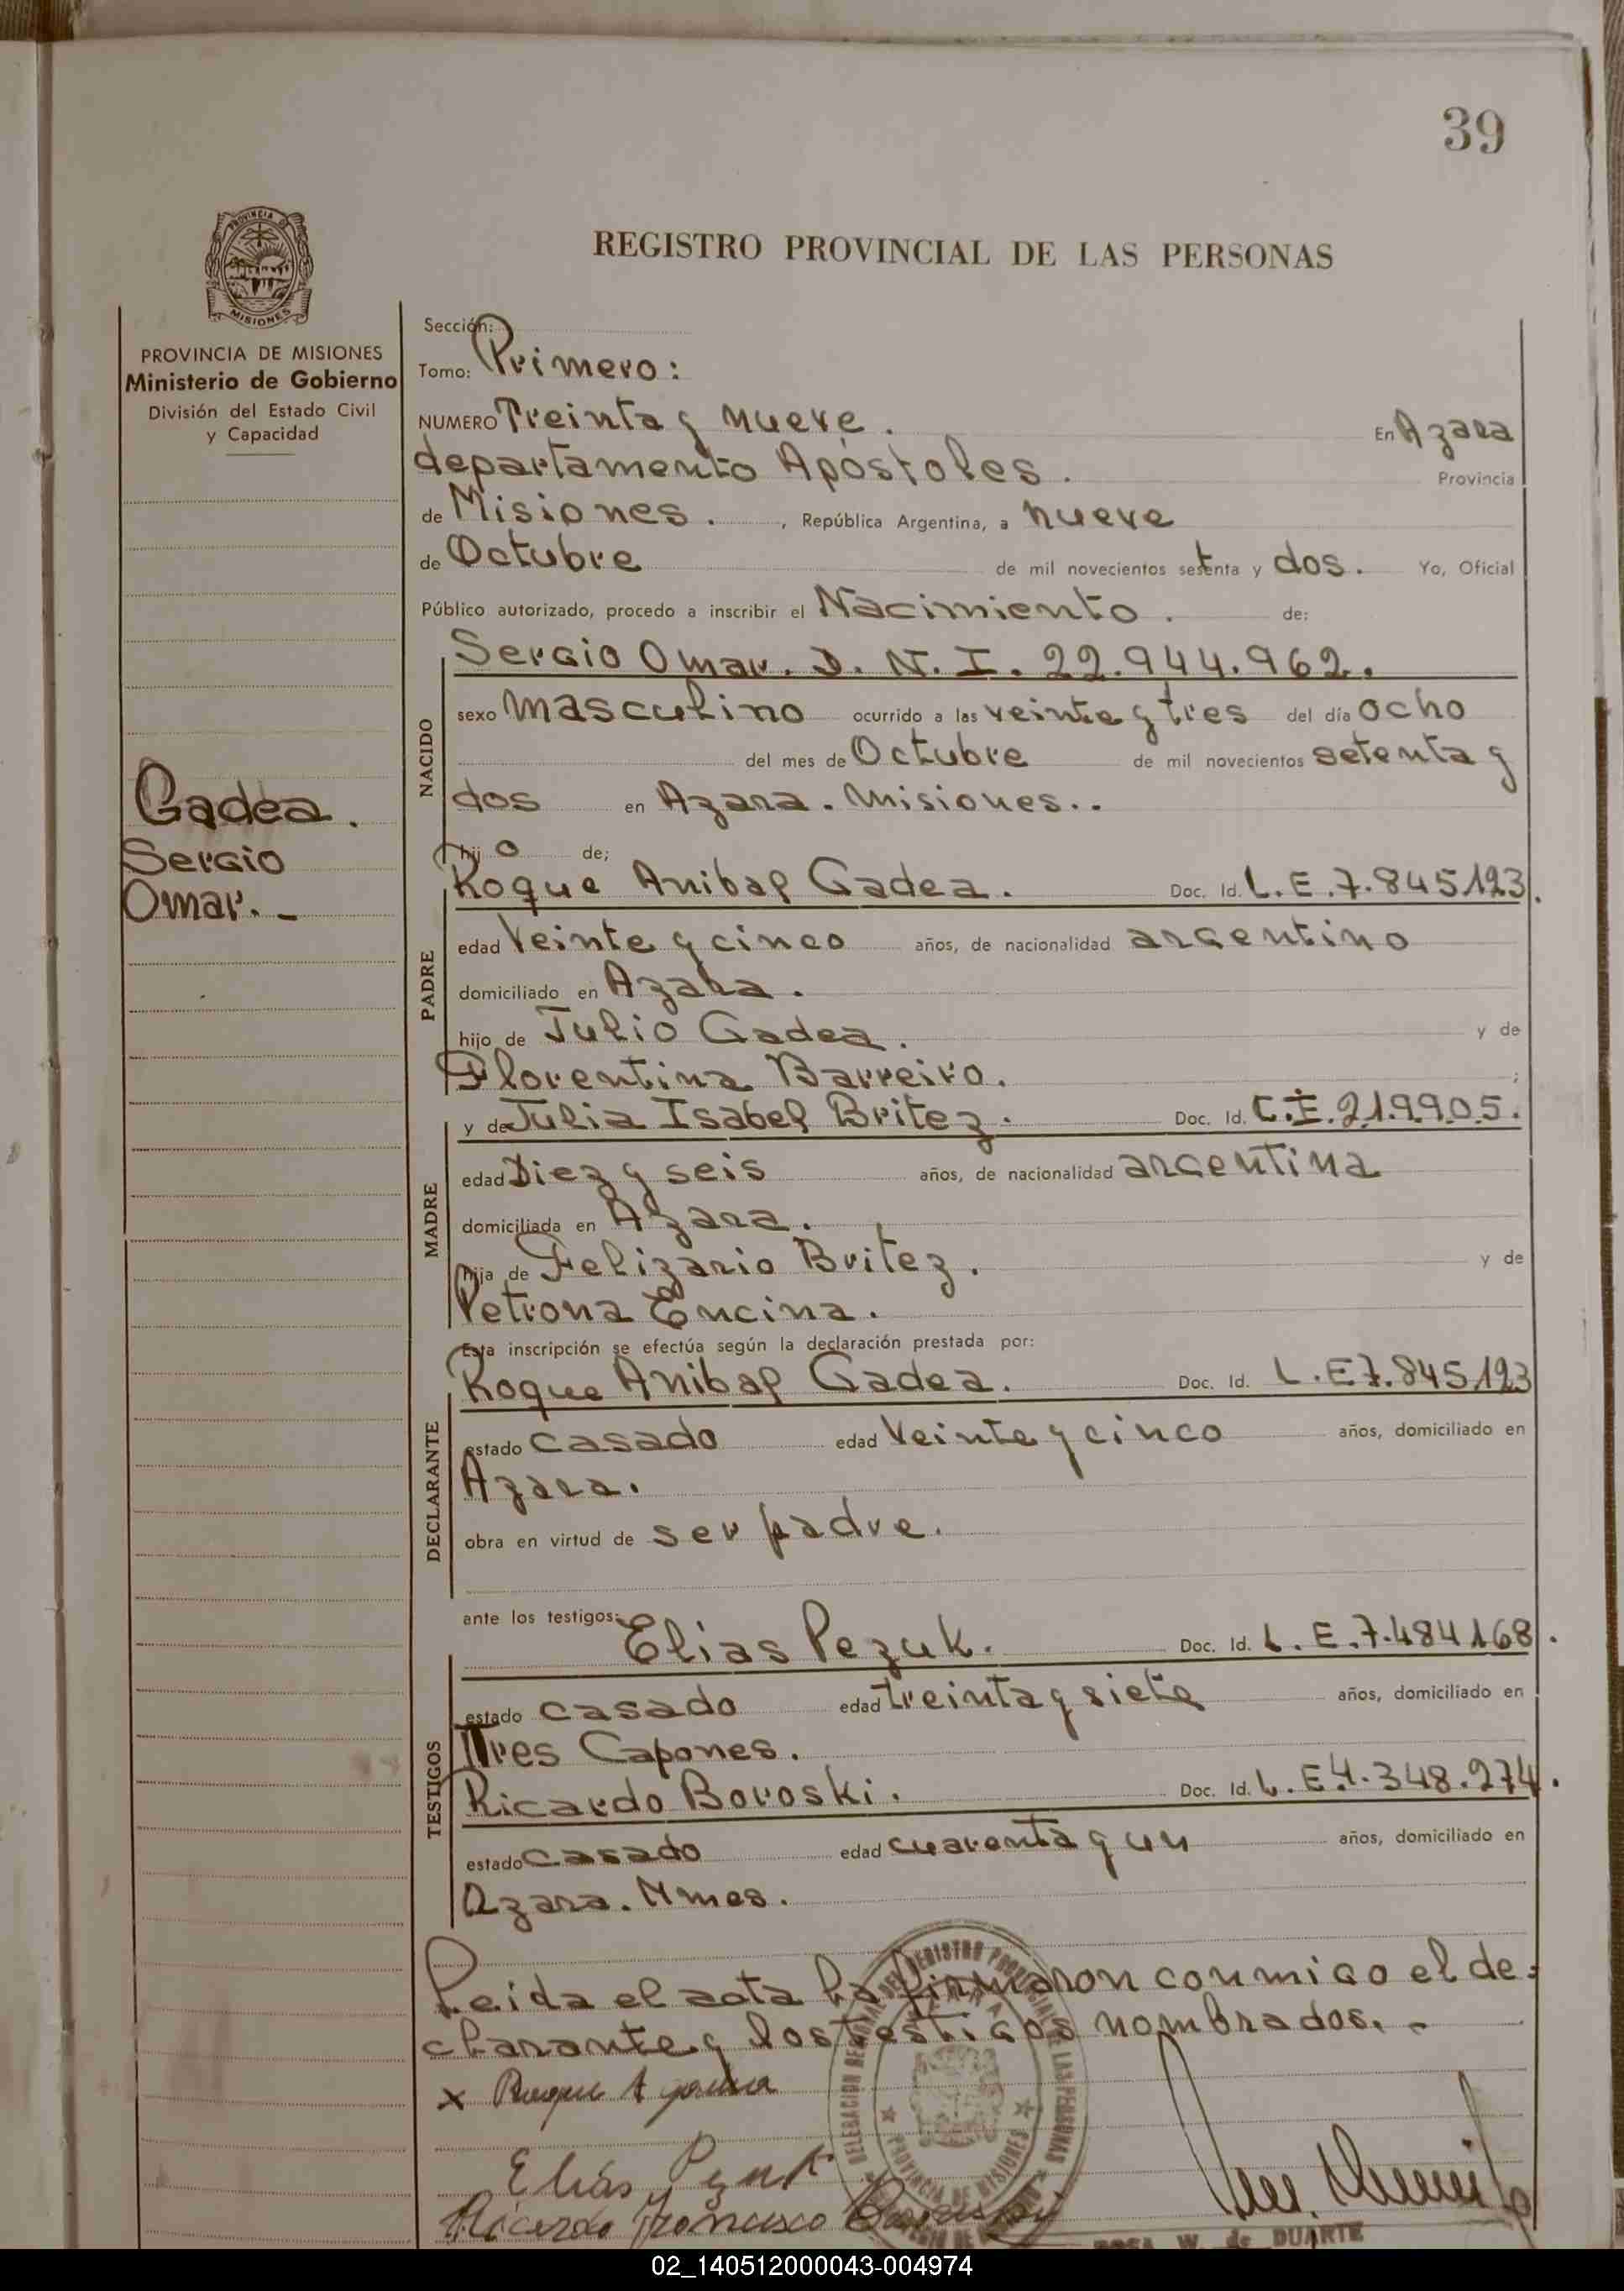 39
REGISTRO PROVINCIAL DE LAS PERSONAS
PROVINCIA DE MISIONES
PROVINCIA DE MISIONES
Ministerio de Gobierno
División del Estado Civil
y Capacidad
Gadea.
Sergio
Omar.-
Sección:
Tomo: Primero:
NUMERO Treinta y nueve. En Azara
departamento Apóstoles. Provincia
de Misiones. , República Argentina, a nueve
de Octubre de mil novecientos setenta y dos. Yo, Oficial
Público autorizado, procedo a inscribir el Nacimiento. de:
Sergio Omar. D. N. I. 22.944.962.
NACIDO
sexo masculino ocurrido a las veinte y tres del día ocho
del mes de Octubre de mil novecientos setenta y
dos en Azara. Misiones..
hij o de;
Roque Anibal Gadea. Doc. Id. L.E.7.845123.
PADRE
edad Veinte y cinco años, de nacionalidad argentino
domiciliado en Azara.
hijo de Julio Gadea. y de
Florentina Barreiro. ;
y de Julia Isabel Britez. Doc. Id. C.I. 219.905.
MADRE
edad Diez y seis años, de nacionalidad argentina
domiciliada en Azara.
hija de Felizario Britez. y de
Petrona Encina.
Esta inscripción se efectúa según la declaración prestada por:
Roque Anibal Gadea. Doc. Id. L.E7.845123
DECLARANTE
estado casado edad Veinte y cinco años, domiciliado en
Azara.
obra en virtud de ser padre.
ante los testigos:
Elias Pezuk. Doc. Id. L.E.7.484168.
TESTIGOS
estado casado edad treinta y siete años, domiciliado en
Tres Capones.
Ricardo Boroski. Doc. Id. L.E4.348.274.
estado casado edad cuarenta y un años, domiciliado en
Azara. Mnes.
Leida el acta la firmaron conmigo el de-
clarante y los testigos nombrados.-
x Roque A gadea
Elías Pezuk
Ricardo Francisco Boroski
DELEGACION REGIONAL DEL REGISTRO PROVINCIAL DE LAS PERSONAS
AZARA
PROVINCIA DE MISIONES
ROSA W. de DUARTE
02_140512000043-004974